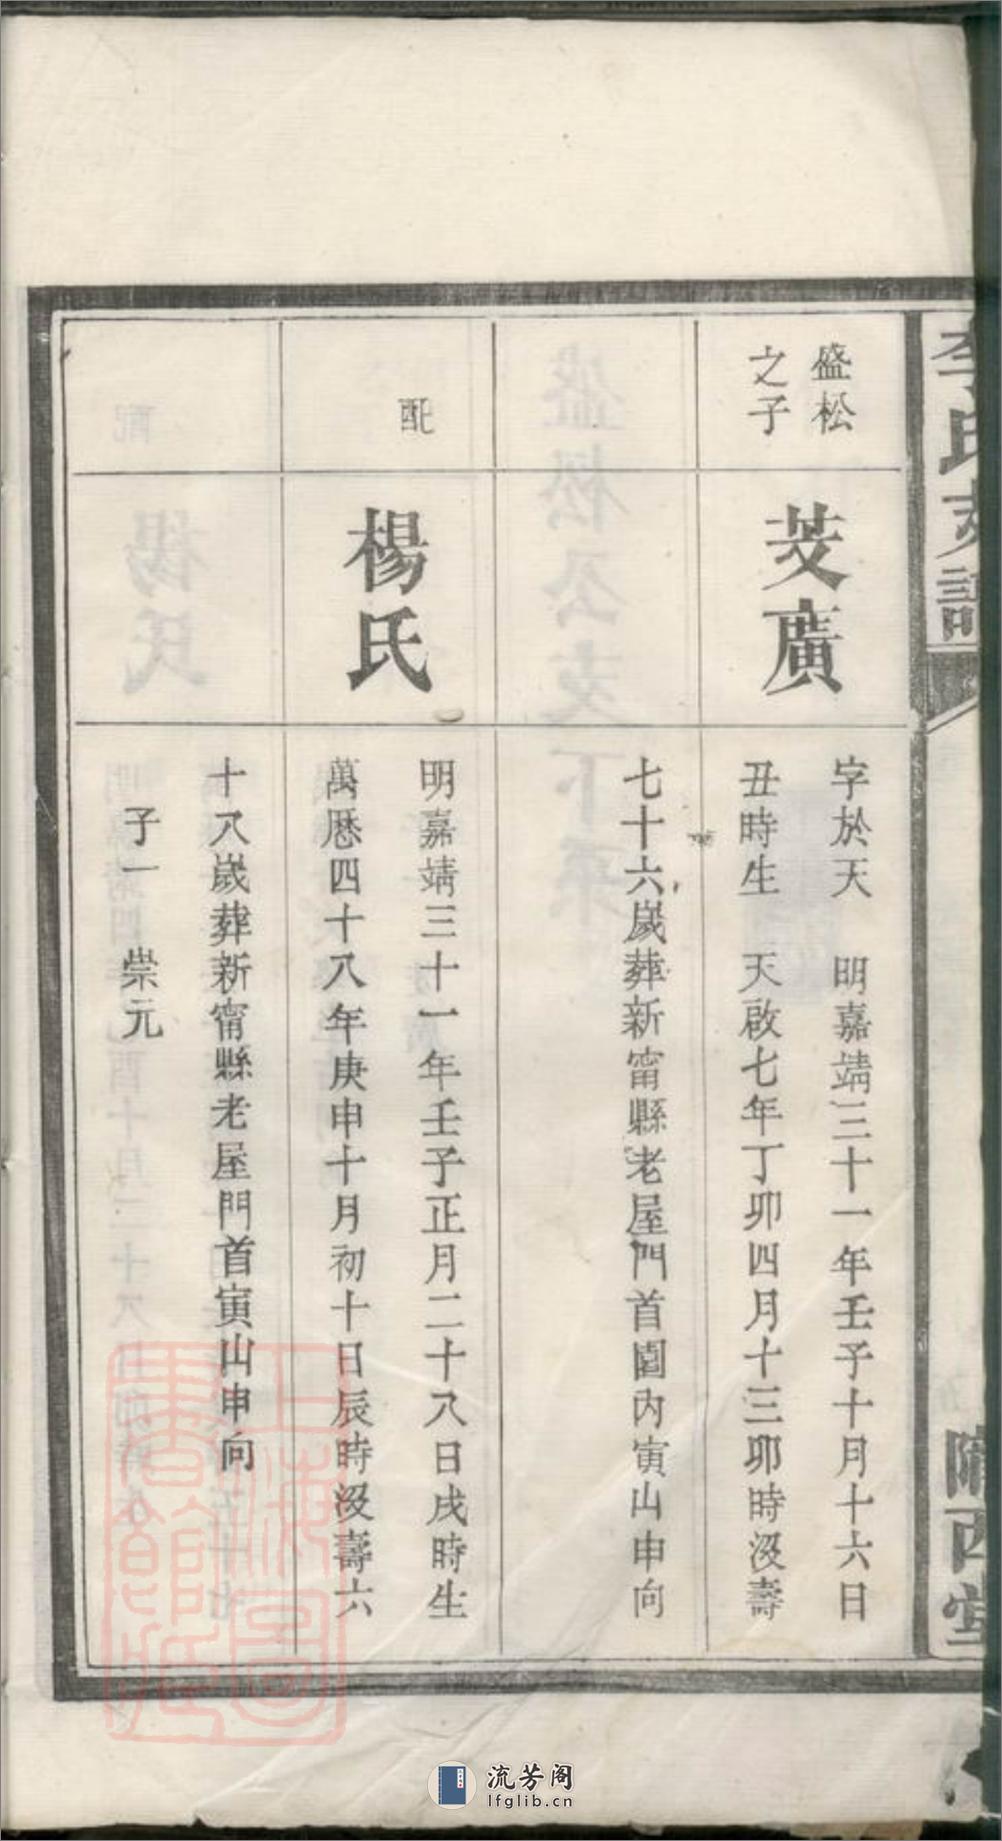 李氏支譜
隴西堂
盛松
之子
芟廣
字於天 明嘉靖三十一年壬子十月十六日
丑時生 天啟七年丁卯四月十三卯時沒壽
七十六嵗葬新甯縣老屋門首園內寅山申向
配
楊氏
明嘉靖三十一年壬子正月二十八日戌時生
萬曆四十八年庚申十月初十日辰時沒壽六
十八嵗葬新甯縣老屋門首寅山申向
子一 崇元
上海圖書館藏
流芳阁
lfglib.cn